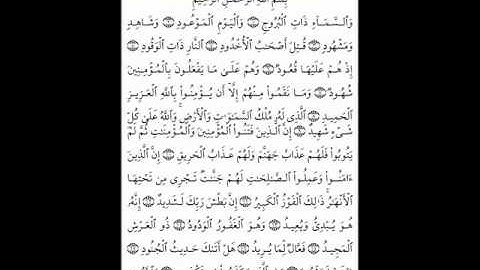 بِسْمِ اللَّهِ الرَّحْمَٰنِ الرَّحِيمِ
وَالسَّمَاءِ ذَاتِ الْبُرُوجِ ۝ وَالْيَوْمِ الْمَوْعُودِ ۝ وَشَاهِدٍ
وَمَشْهُودٍ ۝ قُتِلَ أَصْحَابُ الْأُخْدُودِ ۝ النَّارِ ذَاتِ الْوَقُودِ ۝
إِذْ هُمْ عَلَيْهَا قُعُودٌ ۝ وَهُمْ عَلَىٰ مَا يَفْعَلُونَ بِالْمُؤْمِنِينَ
شُهُودٌ ۝ وَمَا نَقَمُوا مِنْهُمْ إِلَّا أَن يُؤْمِنُوا بِاللَّهِ الْعَزِيزِ
الْحَمِيدِ ۝ الَّذِي لَهُ مُلْكُ السَّمَاوَاتِ وَالْأَرْضِ وَاللَّهُ عَلَىٰ كُلِّ
شَيْءٍ شَهِيدٌ ۝ إِنَّ الَّذِينَ فَتَنُوا الْمُؤْمِنِينَ وَالْمُؤْمِنَاتِ ثُمَّ لَمْ
يَتُوبُوا فَلَهُمْ عَذَابُ جَهَنَّمَ وَلَهُمْ عَذَابُ الْحَرِيقِ ۝ إِنَّ الَّذِينَ
ءَامَنُوا وَعَمِلُوا الصَّالِحَاتِ لَهُمْ جَنَّاتٌ تَجْرِي مِن تَحْتِهَا
الْأَنْهَارُ ذَٰلِكَ الْفَوْزُ الْكَبِيرُ ۝ إِنَّ بَطْشَ رَبِّكَ لَشَدِيدٌ ۝ إِنَّهُ
هُوَ يُبْدِئُ وَيُعِيدُ ۝ وَهُوَ الْغَفُورُ الْوَدُودُ ۝ ذُو الْعَرْشِ
الْمَجِيدُ ۝ فَعَّالٌ لِّمَا يُرِيدُ ۝ هَلْ أَتَاكَ حَدِيثُ الْجُنُودِ ۝